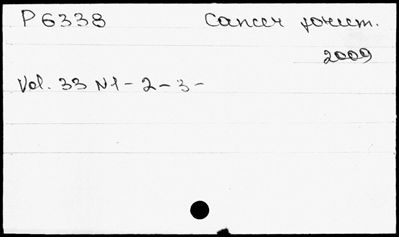 P 6338 Cancer forum.
2009
Vol. 33 N1 - 2 - 3 -